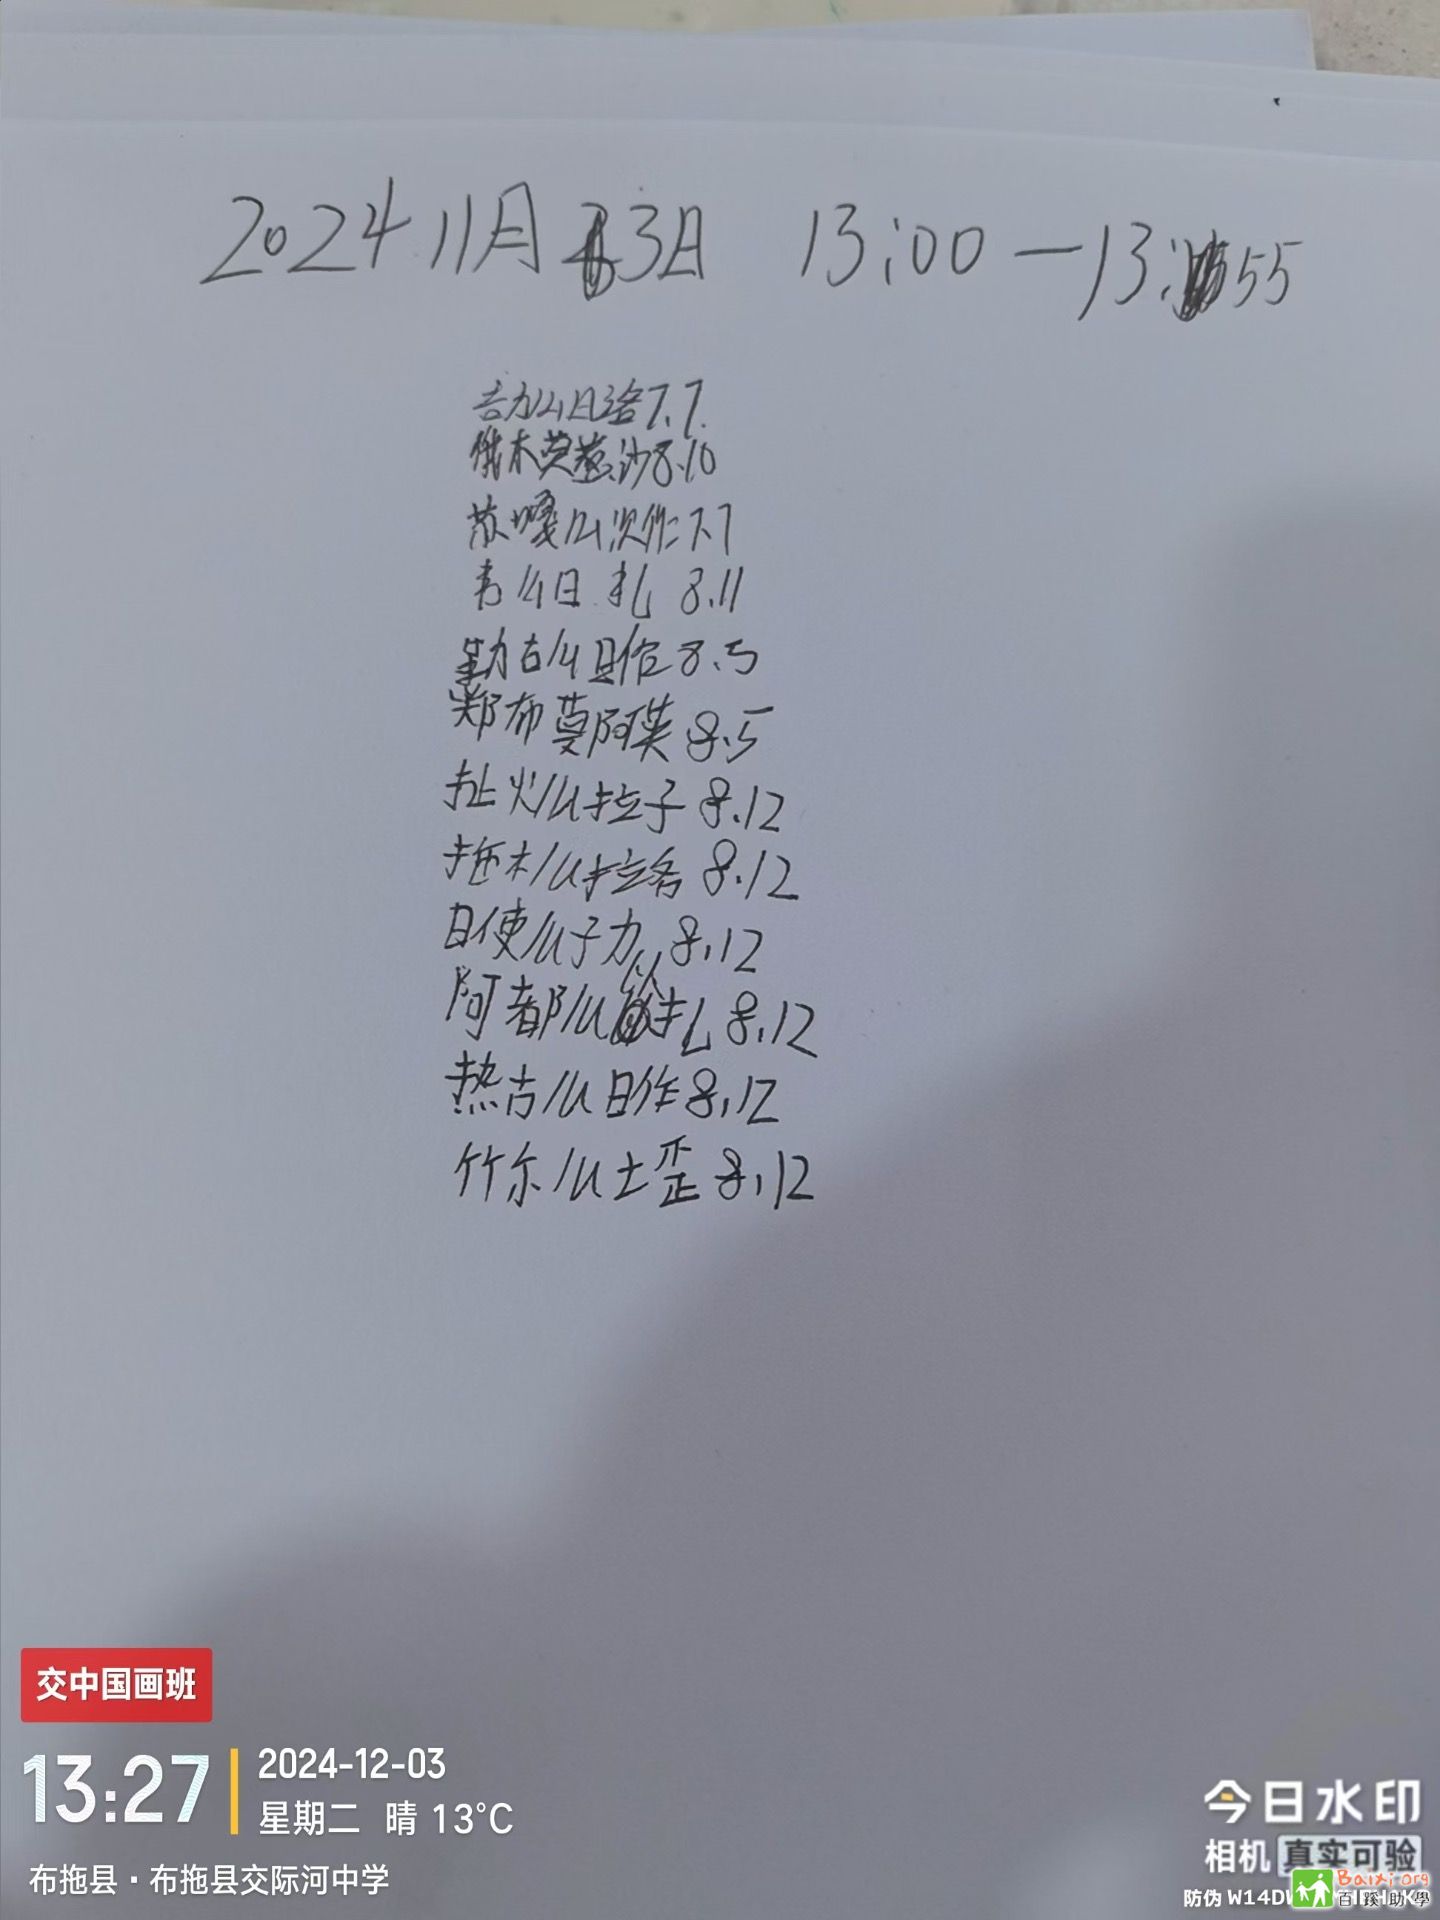 2024 11月 3日 13:00—13:55
吉力么日洛 7.7.
俄木莫惹沙 8.10
苏嘎么次作 7.7
韦么日扎 8.11
勒古么日作 8.5
郑布莫阿英 8.5
扯火么拉子 8.12
拖木么拉各 8.12
日使么子力 8.12
阿都么扎 8.12
热古么日作 8.12
竹尔么土歪 8.12
交中国画班
13:27
2024-12-03
星期二 晴 13°C
布拖县·布拖县交际河中学
今日水印
相机 真实可验
防伪 W14D
Baixi.org
百蹊助學